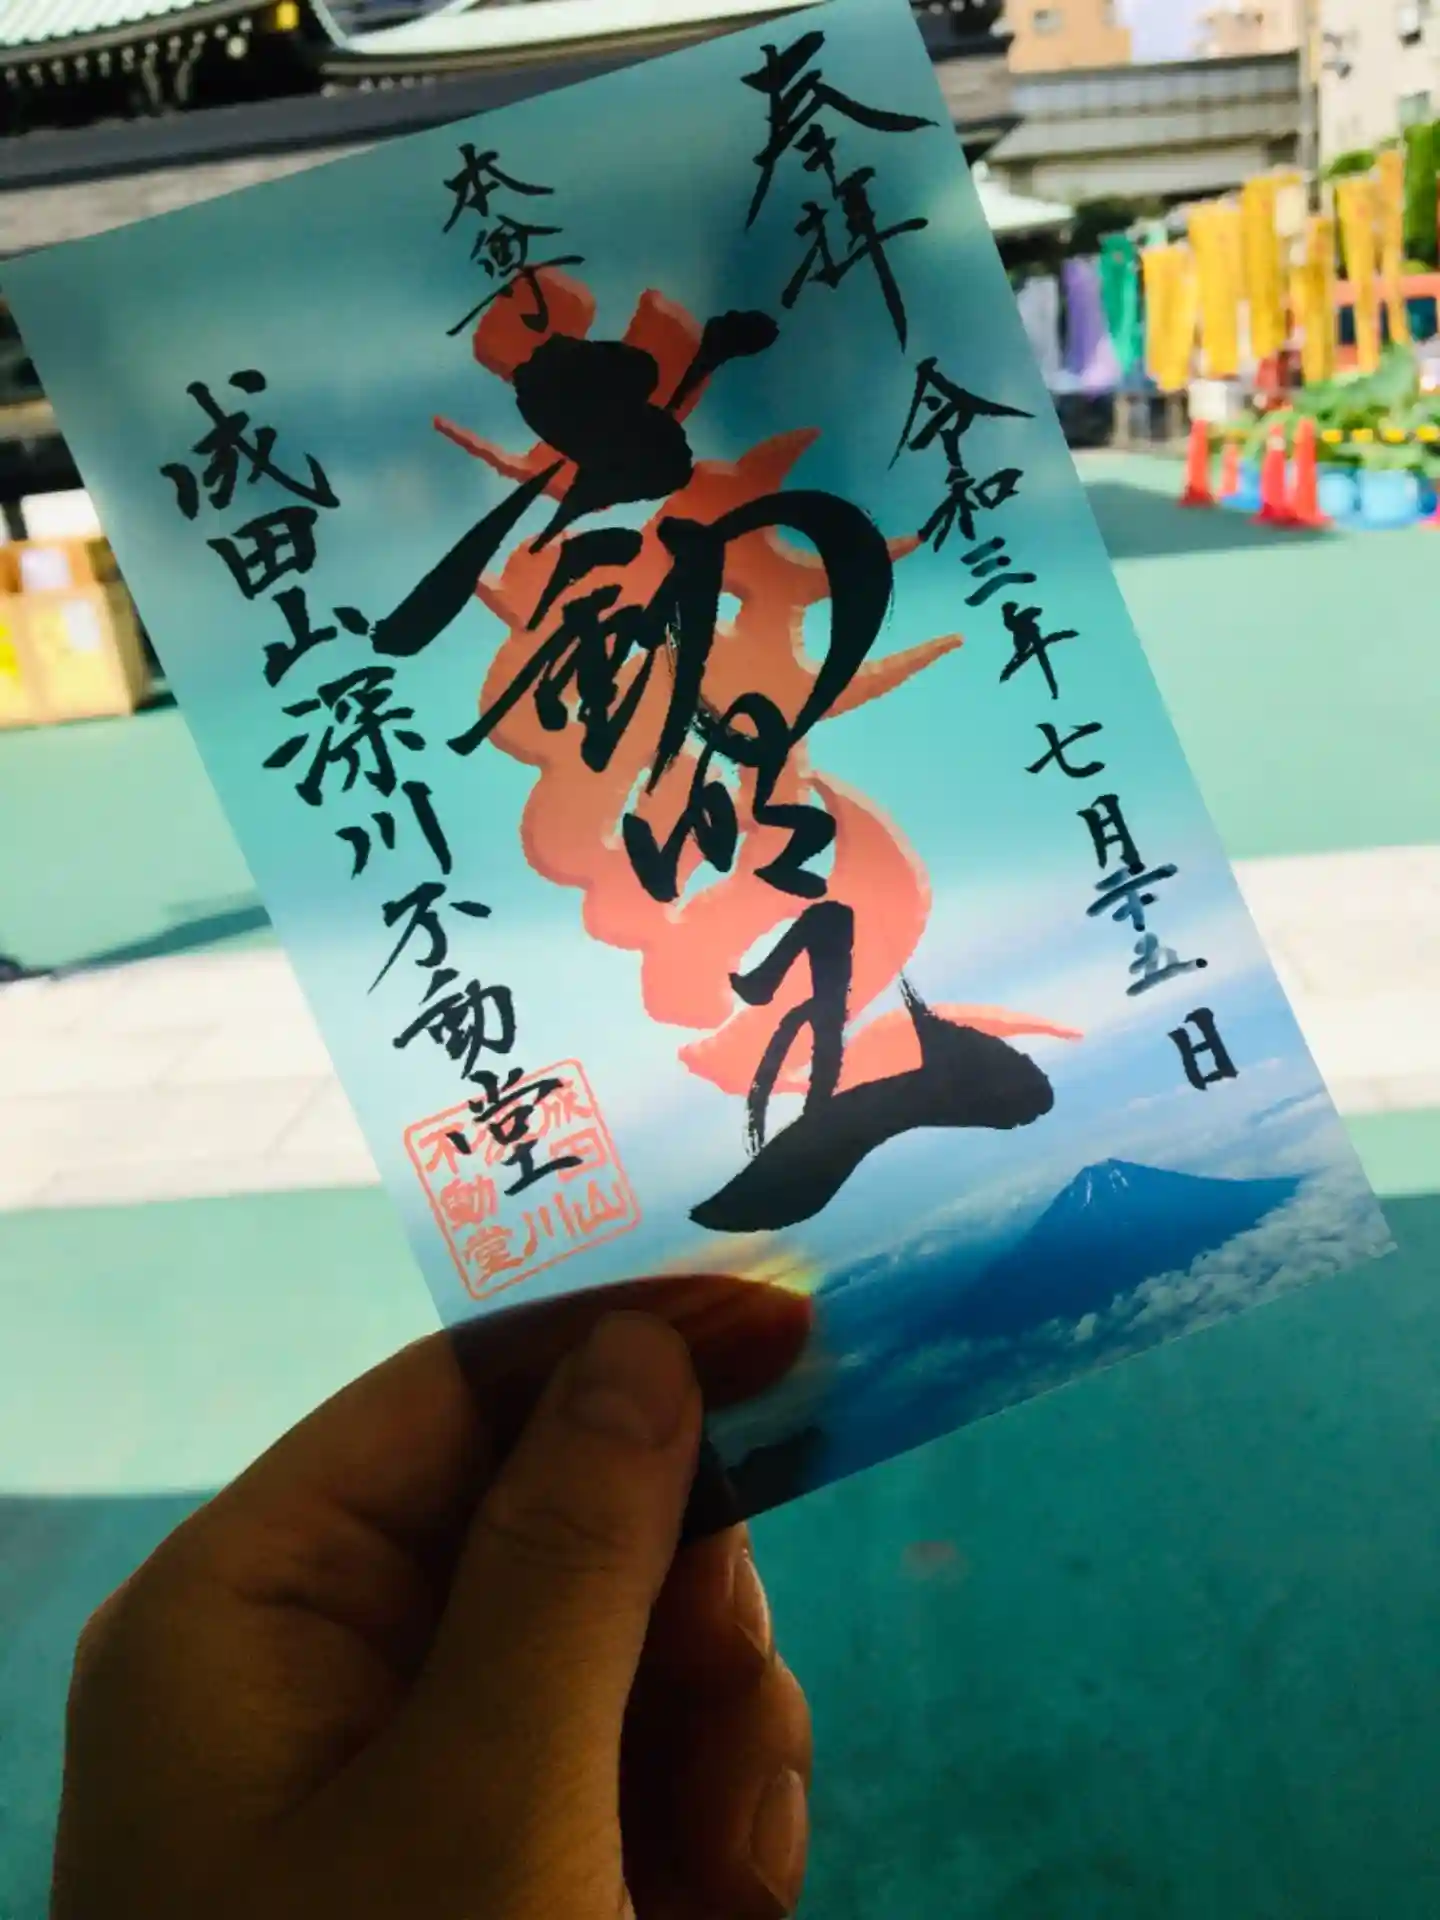 奉拝
令和三年七月二十五日
本尊
不動明王
成田山深川不動堂
成田山
深川
不動堂